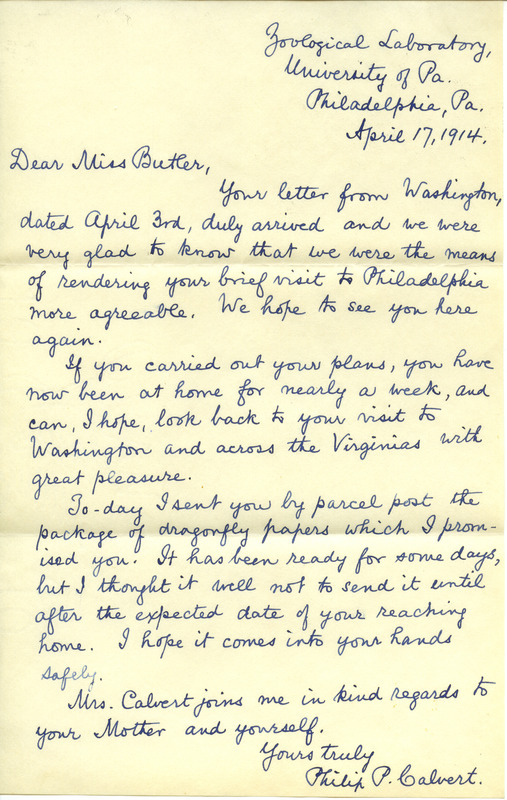 Zoological Laboratory,
University of Pa.
Philadelphia, Pa.
April 17, 1914.
Dear Miss Butler,
Your letter from Washington,
dated April 3rd, duly arrived and we were
very glad to know that we were the means
of rendering your brief visit to Philadelphia
more agreeable. We hope to see you here
again.
If you carried out your plans, you have
now been at home for nearly a week, and
can, I hope, look back to your visit to
Washington and across the Virginias with
great pleasure.
To-day I sent you by parcel post the
package of dragonfly papers which I prom-
ised you. It has been ready for some days,
but I thought it well not to send it until
after the expected date of your reaching
home. I hope it comes into your hands
safely.
Mrs. Calvert joins me in kind regards to
your Mother and yourself.
Yours truly
Philip P. Calvert.